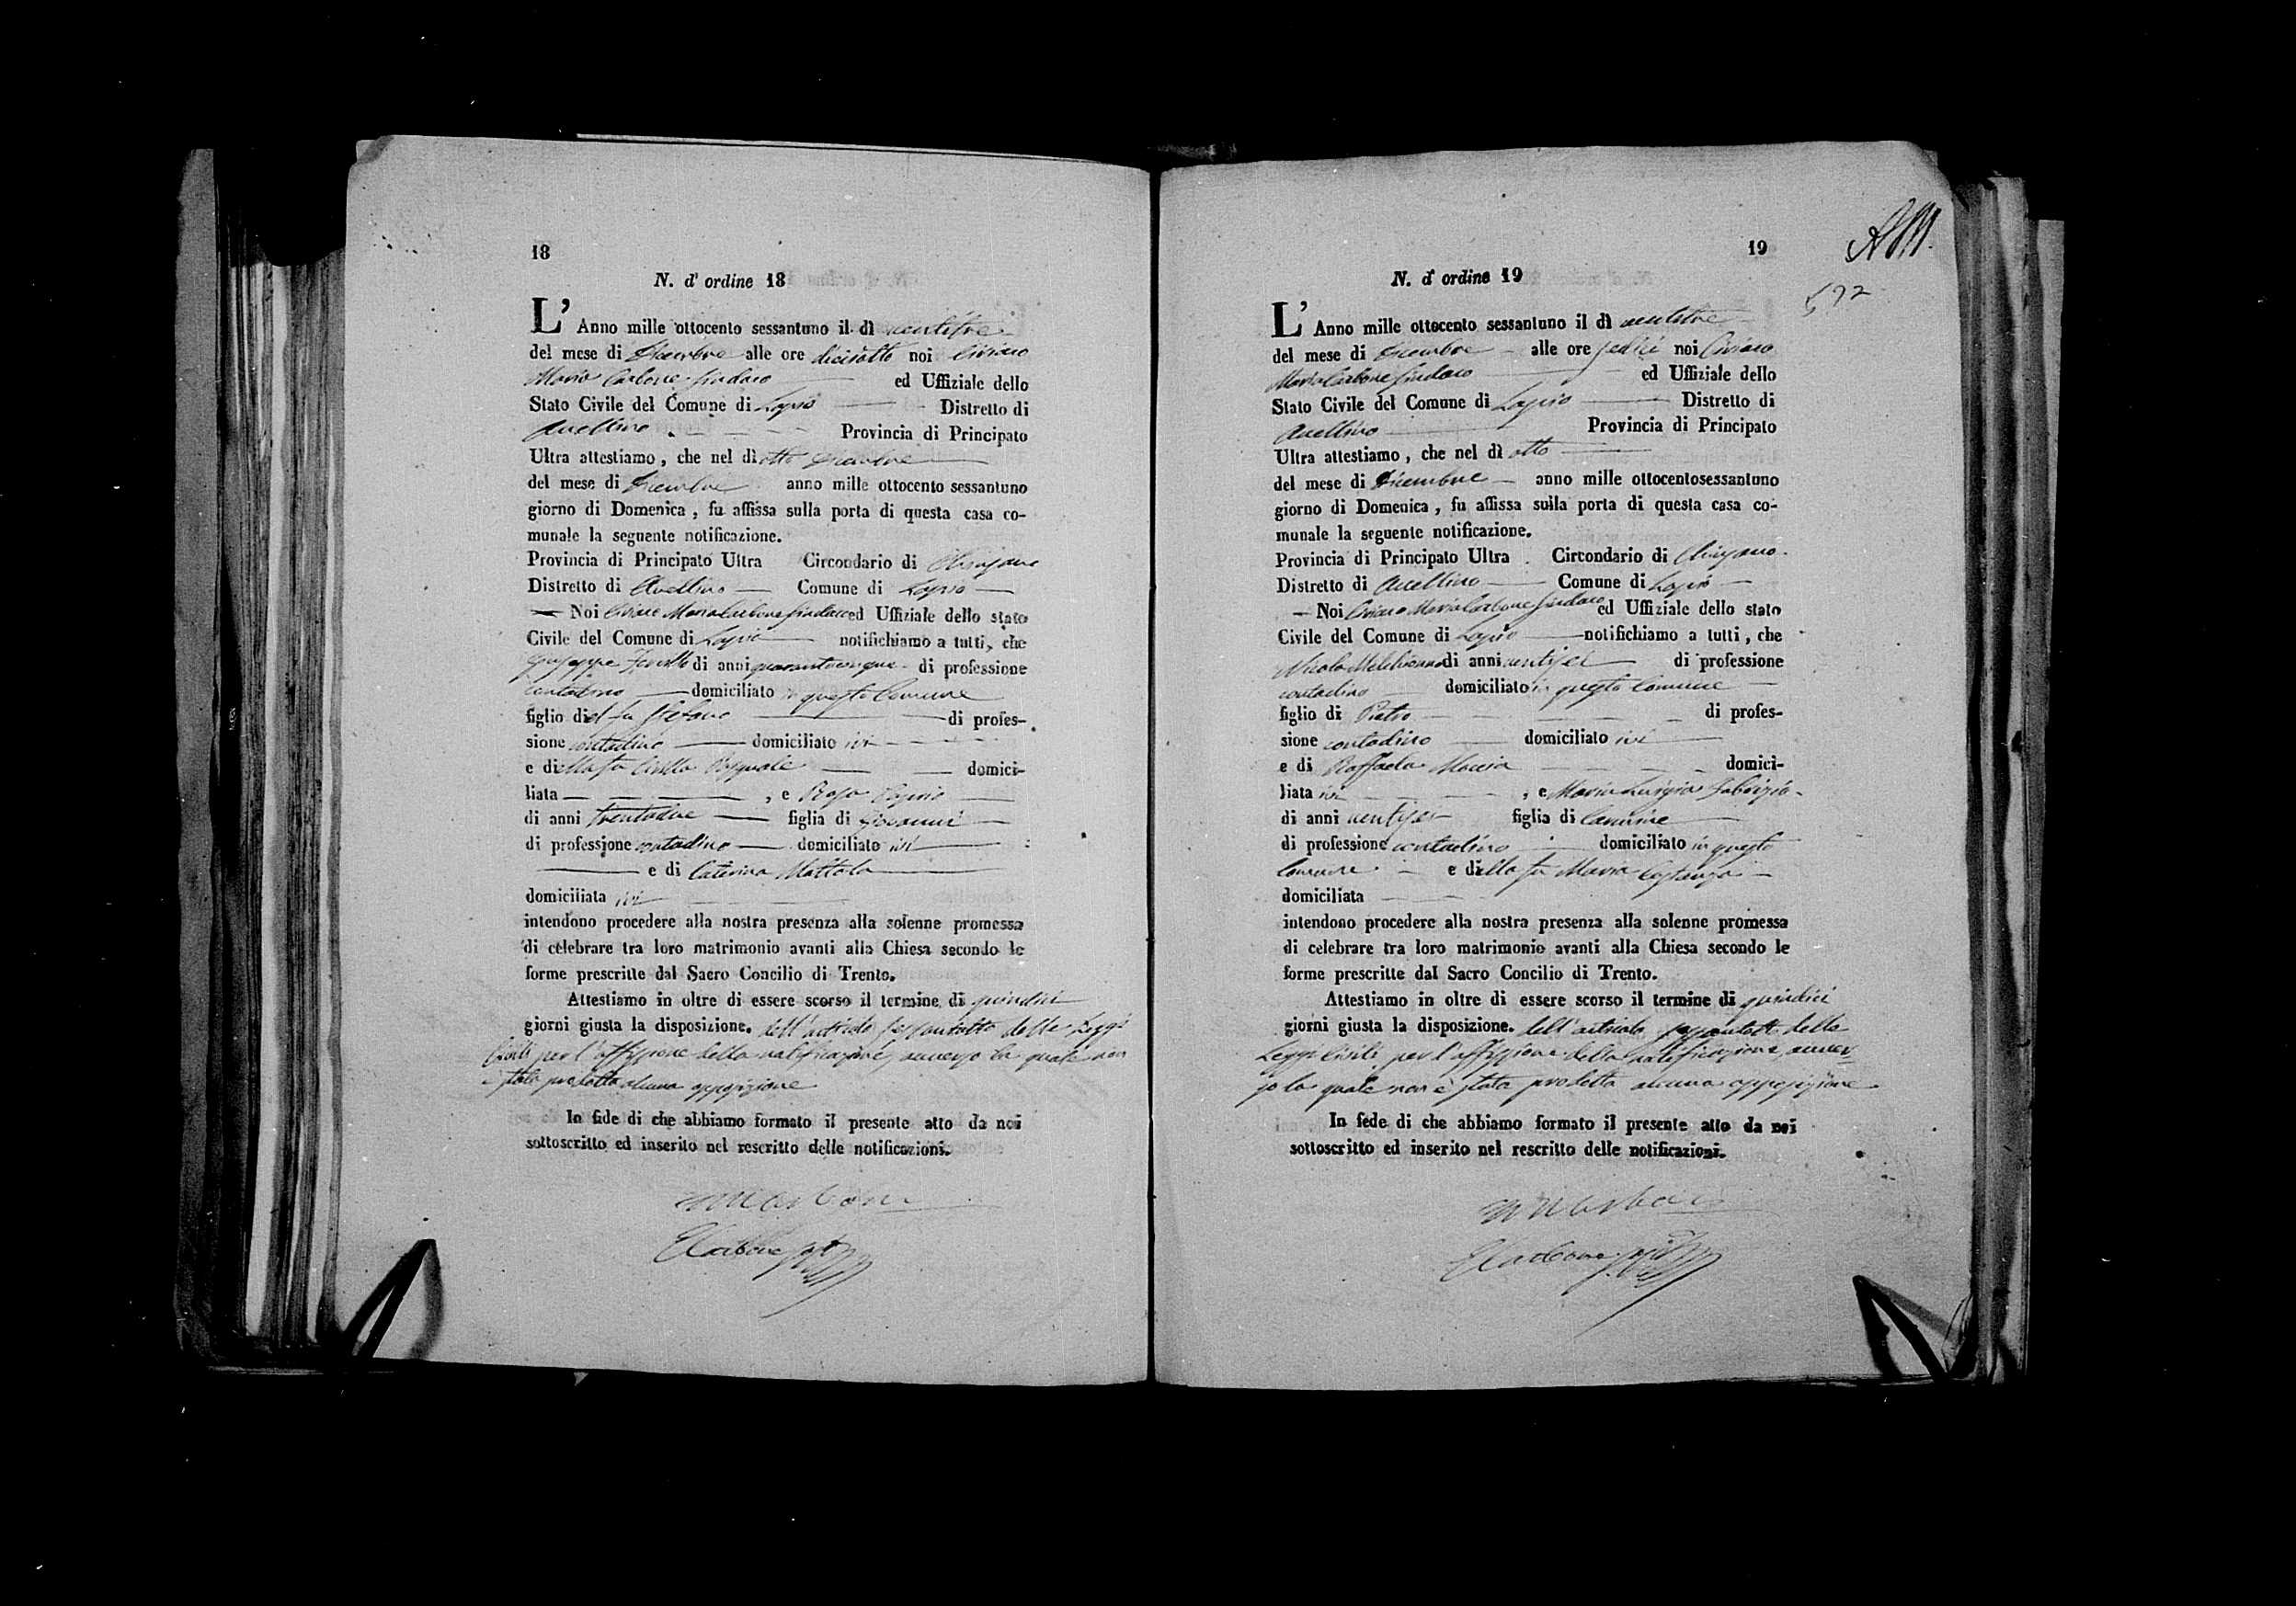 18
N. d' ordine 18
L' Anno mille ottocento sessantuno il dì ventitre
del mese di Dicembre alle ore diciotto noi Ciriaco
Maria Carbone Sindaco ed Uffiziale dello
Stato Civile del Comune di Lapio Distretto di
Avellino Provincia di Principato
Ultra attestiamo, che nel dì otto Dicembre
del mese di Dicembre anno mille ottocento sessantuno
giorno di Domenica, fu affissa sulla porta di questa casa co-
munale la seguente notificazione.
Provincia di Principato Ultra Circondario di Chiusano
Distretto di Avellino Comune di Lapio
Noi Ciriaco Maria Carbone Sindaco ed Uffiziale dello stato
Civile del Comune di Lapio notifichiamo a tutti, che
Giuseppe di anni quarantacinque di professione
contadino domiciliato in questo Comune
figlio del fu Stefano di profes-
sione contadino domiciliato ivi
e della fu Pasquale domici-
liata , e Rosa
di anni trentadue figlia di Giovanni
di professione contadino domiciliato ivi
e di Caterina Mottola
domiciliata ivi
intendono procedere alla nostra presenza alla solenne promessa
di celebrare tra loro matrimonio avanti alla Chiesa secondo le
forme prescritte dal Sacro Concilio di Trento.
Attestiamo in oltre di essere scorso il termine di quindici
giorni giusta la disposizione. dell'articolo sessantotto delle Leggi
Civili per l'affissione della notificazione, avverso la quale non
è stata prodotta alcuna opposizione
In fede di che abbiamo formato il presente atto da noi
sottoscritto ed inserito nel rescritto delle notificazioni.
Carbone
19
N. d' ordine 19
L' Anno mille ottocento sessantuno il dì ventitre
del mese di Dicembre alle ore sedici noi Ciriaco
Maria Carbone Sindaco ed Uffiziale dello
Stato Civile del Comune di Lapio Distretto di
Avellino Provincia di Principato
Ultra attestiamo, che nel dì otto
del mese di Dicembre anno mille ottocentosessantuno
giorno di Domenica, fu affissa sulla porta di questa casa co-
munale la seguente notificazione.
Provincia di Principato Ultra Circondario di Chiusano
Distretto di Avellino Comune di Lapio
Noi Ciriaco Maria Carbone Sindaco ed Uffiziale dello stato
Civile del Comune di Lapio notifichiamo a tutti, che
Nicola Melchionna di anni ventisei di professione
contadino domiciliato in questo Comune
figlio di Pietro di profes-
sione contadino domiciliato ivi
e di Raffaela domici-
liata ivi , e Maria Luigia Fabrizio
di anni ventisei figlia di Carmine
di professione contadino domiciliato in questo
Comune e della fu Maria Costanza
domiciliata
intendono procedere alla nostra presenza alla solenne promessa
di celebrare tra loro matrimonio avanti alla Chiesa secondo le
forme prescritte dal Sacro Concilio di Trento.
Attestiamo in oltre di essere scorso il termine di quindici
giorni giusta la disposizione. dell'articolo sessantotto delle
Leggi Civili per l'affissione della notificazione, avver-
so la quale non è stata prodotta alcuna opposizione
In fede di che abbiamo formato il presente atto da noi
sottoscritto ed inserito nel rescritto delle notificazioni.
Carbone